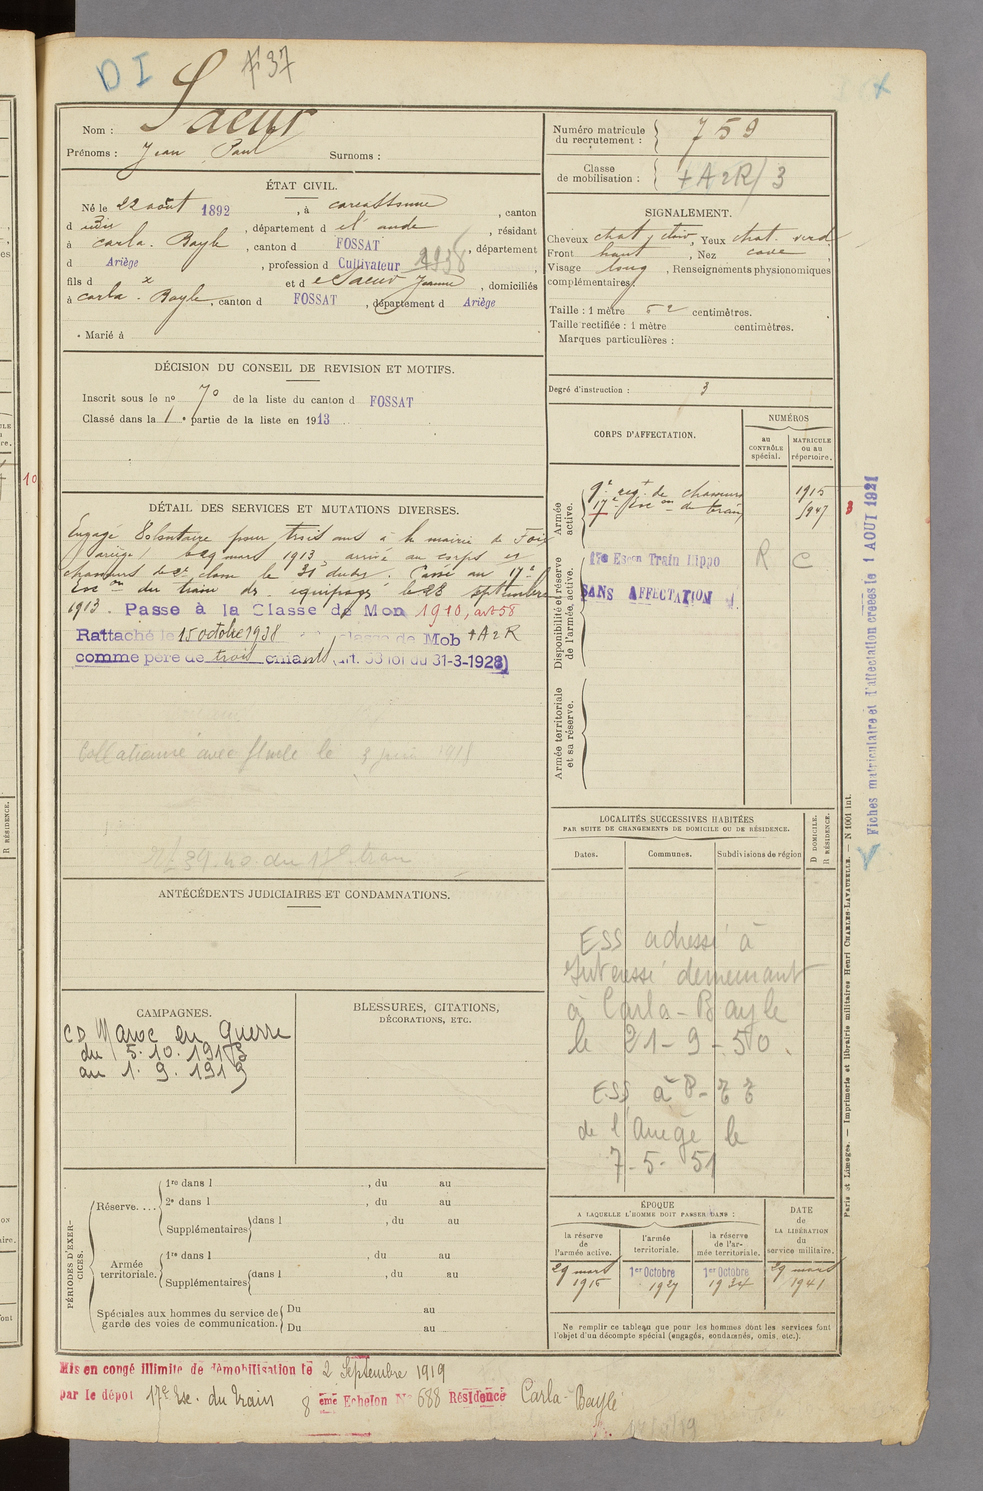 DI
37
Nom : Sacur
Prénoms : Jean Paul Surnoms :
ÉTAT CIVIL.
Né le 22 août 1892, à carcassonne, canton
d, département d el aude, résidant
à carla. Bayle, canton d FOSSAT, département
d Ariège, profession d Cultivateur 1938
fils d x et d e Sacur Jeanne, domiciliés
à carla. Bayle, canton d FOSSAT, département d Ariège
Marié à
DÉCISION DU CONSEIL DE REVISION ET MOTIFS.
Inscrit sous le no 7o de la liste du canton d FOSSAT
Classé dans la 1e partie de la liste en 1913
DÉTAIL DES SERVICES ET MUTATIONS DIVERSES.
Engagé Volontaire pour trois ans à la mairie de Foix
(ariège) le 29 mars 1913, arrivé au corps et
chasseurs de 2e classe le 31 dudit. Passé au 17e
Esc on du train des équipages le 23 septembre
1913. Passe à la Classe de Mob 1910, art 58
Rattaché le 15 octobre 1938 classe de Mob + A 2 R
comme père de trois enfants (art. 58 loi du 31-3-1928)
Collationné avec le
du train
ANTÉCÉDENTS JUDICIAIRES ET CONDAMNATIONS.
CAMPAGNES.
CD Maroc en Guerre
du 5.10.1913
au 1.9.1919
BLESSURES, CITATIONS,
DÉCORATIONS, ETC.
PÉRIODES D'EXERCICES.
Réserve.... 1re dans l, du au
2e dans l, du au
Supplémentaires dans l, du au
Armée territoriale. 1re dans l, du au
Supplémentaires dans l, du au
Spéciales aux hommes du service de garde des voies de communication. Du au
Du au
Numéro matricule du recrutement : 759
Classe de mobilisation : + A 2 R / 3
SIGNALEMENT.
Cheveux chat, clair, Yeux chat. verd
Front haut, Nez cave
Visage long, Renseignements physionomiques
complémentaires
Taille : 1 mètre 52 centimètres.
Taille rectifiée : 1 mètre centimètres.
Marques particulières :
Degré d'instruction : 3
CORPS D'AFFECTATION.
NUMÉROS
au CONTRÔLE spécial.
MATRICULE ou au répertoire.
Armée active.
9e regt de chasseurs 1915
17e Esc on de train 1947
Disponibilité et réserve de l'armée active.
17e Escon Train Hippo R C
SANS AFFECTATION
Armée territoriale et sa réserve.
LOCALITÉS SUCCESSIVES HABITÉES
PAR SUITE DE CHANGEMENTS DE DOMICILE OU DE RÉSIDENCE.
Dates. Communes. Subdivisions de région
D DOMICILE.
R RÉSIDENCE.
ESS adressé à
Intéressé demeurant
à Carla-Bayle
le 21-9-50.
ESS à P-
de l'Ariège le
7-5-51
ÉPOQUE
A LAQUELLE L'HOMME DOIT PASSER DANS :
la réserve de l'armée active.
l'armée territoriale.
la réserve de l'armée territoriale.
DATE de LA LIBÉRATION du service militaire.
29 mars 1916
1er Octobre 1927
1er Octobre 1934
29 mars 1941
Ne remplir ce tableau que pour les hommes dont les services font
l'objet d'un décompte spécial (engagés, condamnés, omis, etc.).
Fiches matriculaire et d'affectation créées le 1 AOUT 1921
Paris et Limoges. — Imprimerie et librairie militaires Henri CHARLES-LAVAUZELLE. — N 1001 int.
Mis en congé illimité de démobilisation le 2 Septembre 1919
par le dépôt 17e Esc. du Train 8 ème Echelon No 688 Résidence Carla-Bayle